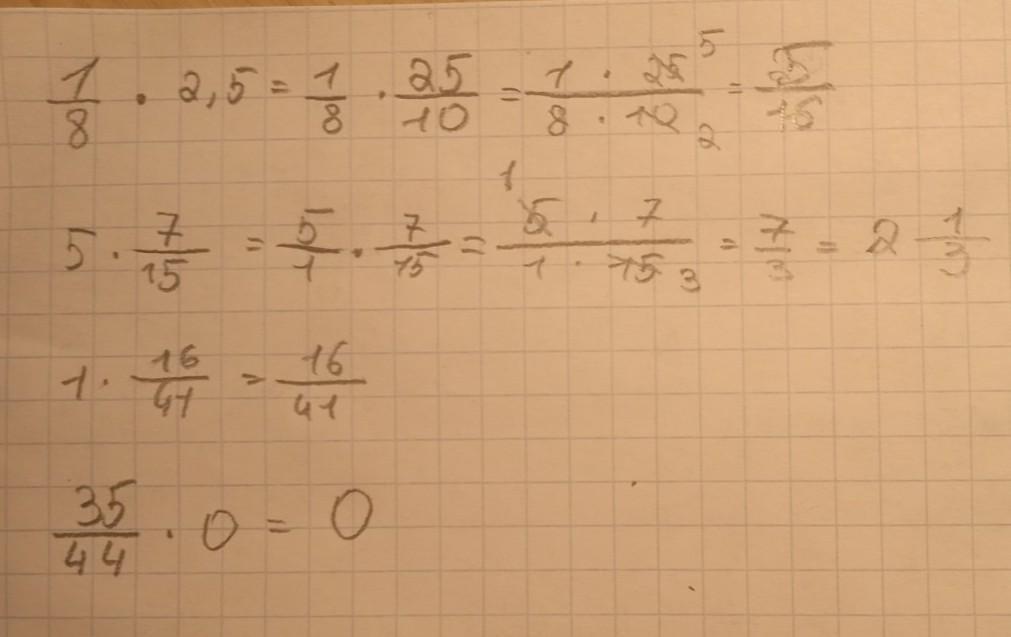 1/8 · 2,5 = 1/8 · 25/10 = 1 · 25 5 / 8 · 10 2 = 5/16
5 · 7/15 = 5/1 · 7/15 = 1 5 · 7 / 1 · 15 3 = 7/3 = 2 1/3
1 · 16/41 = 16/41
35/44 · 0 = 0